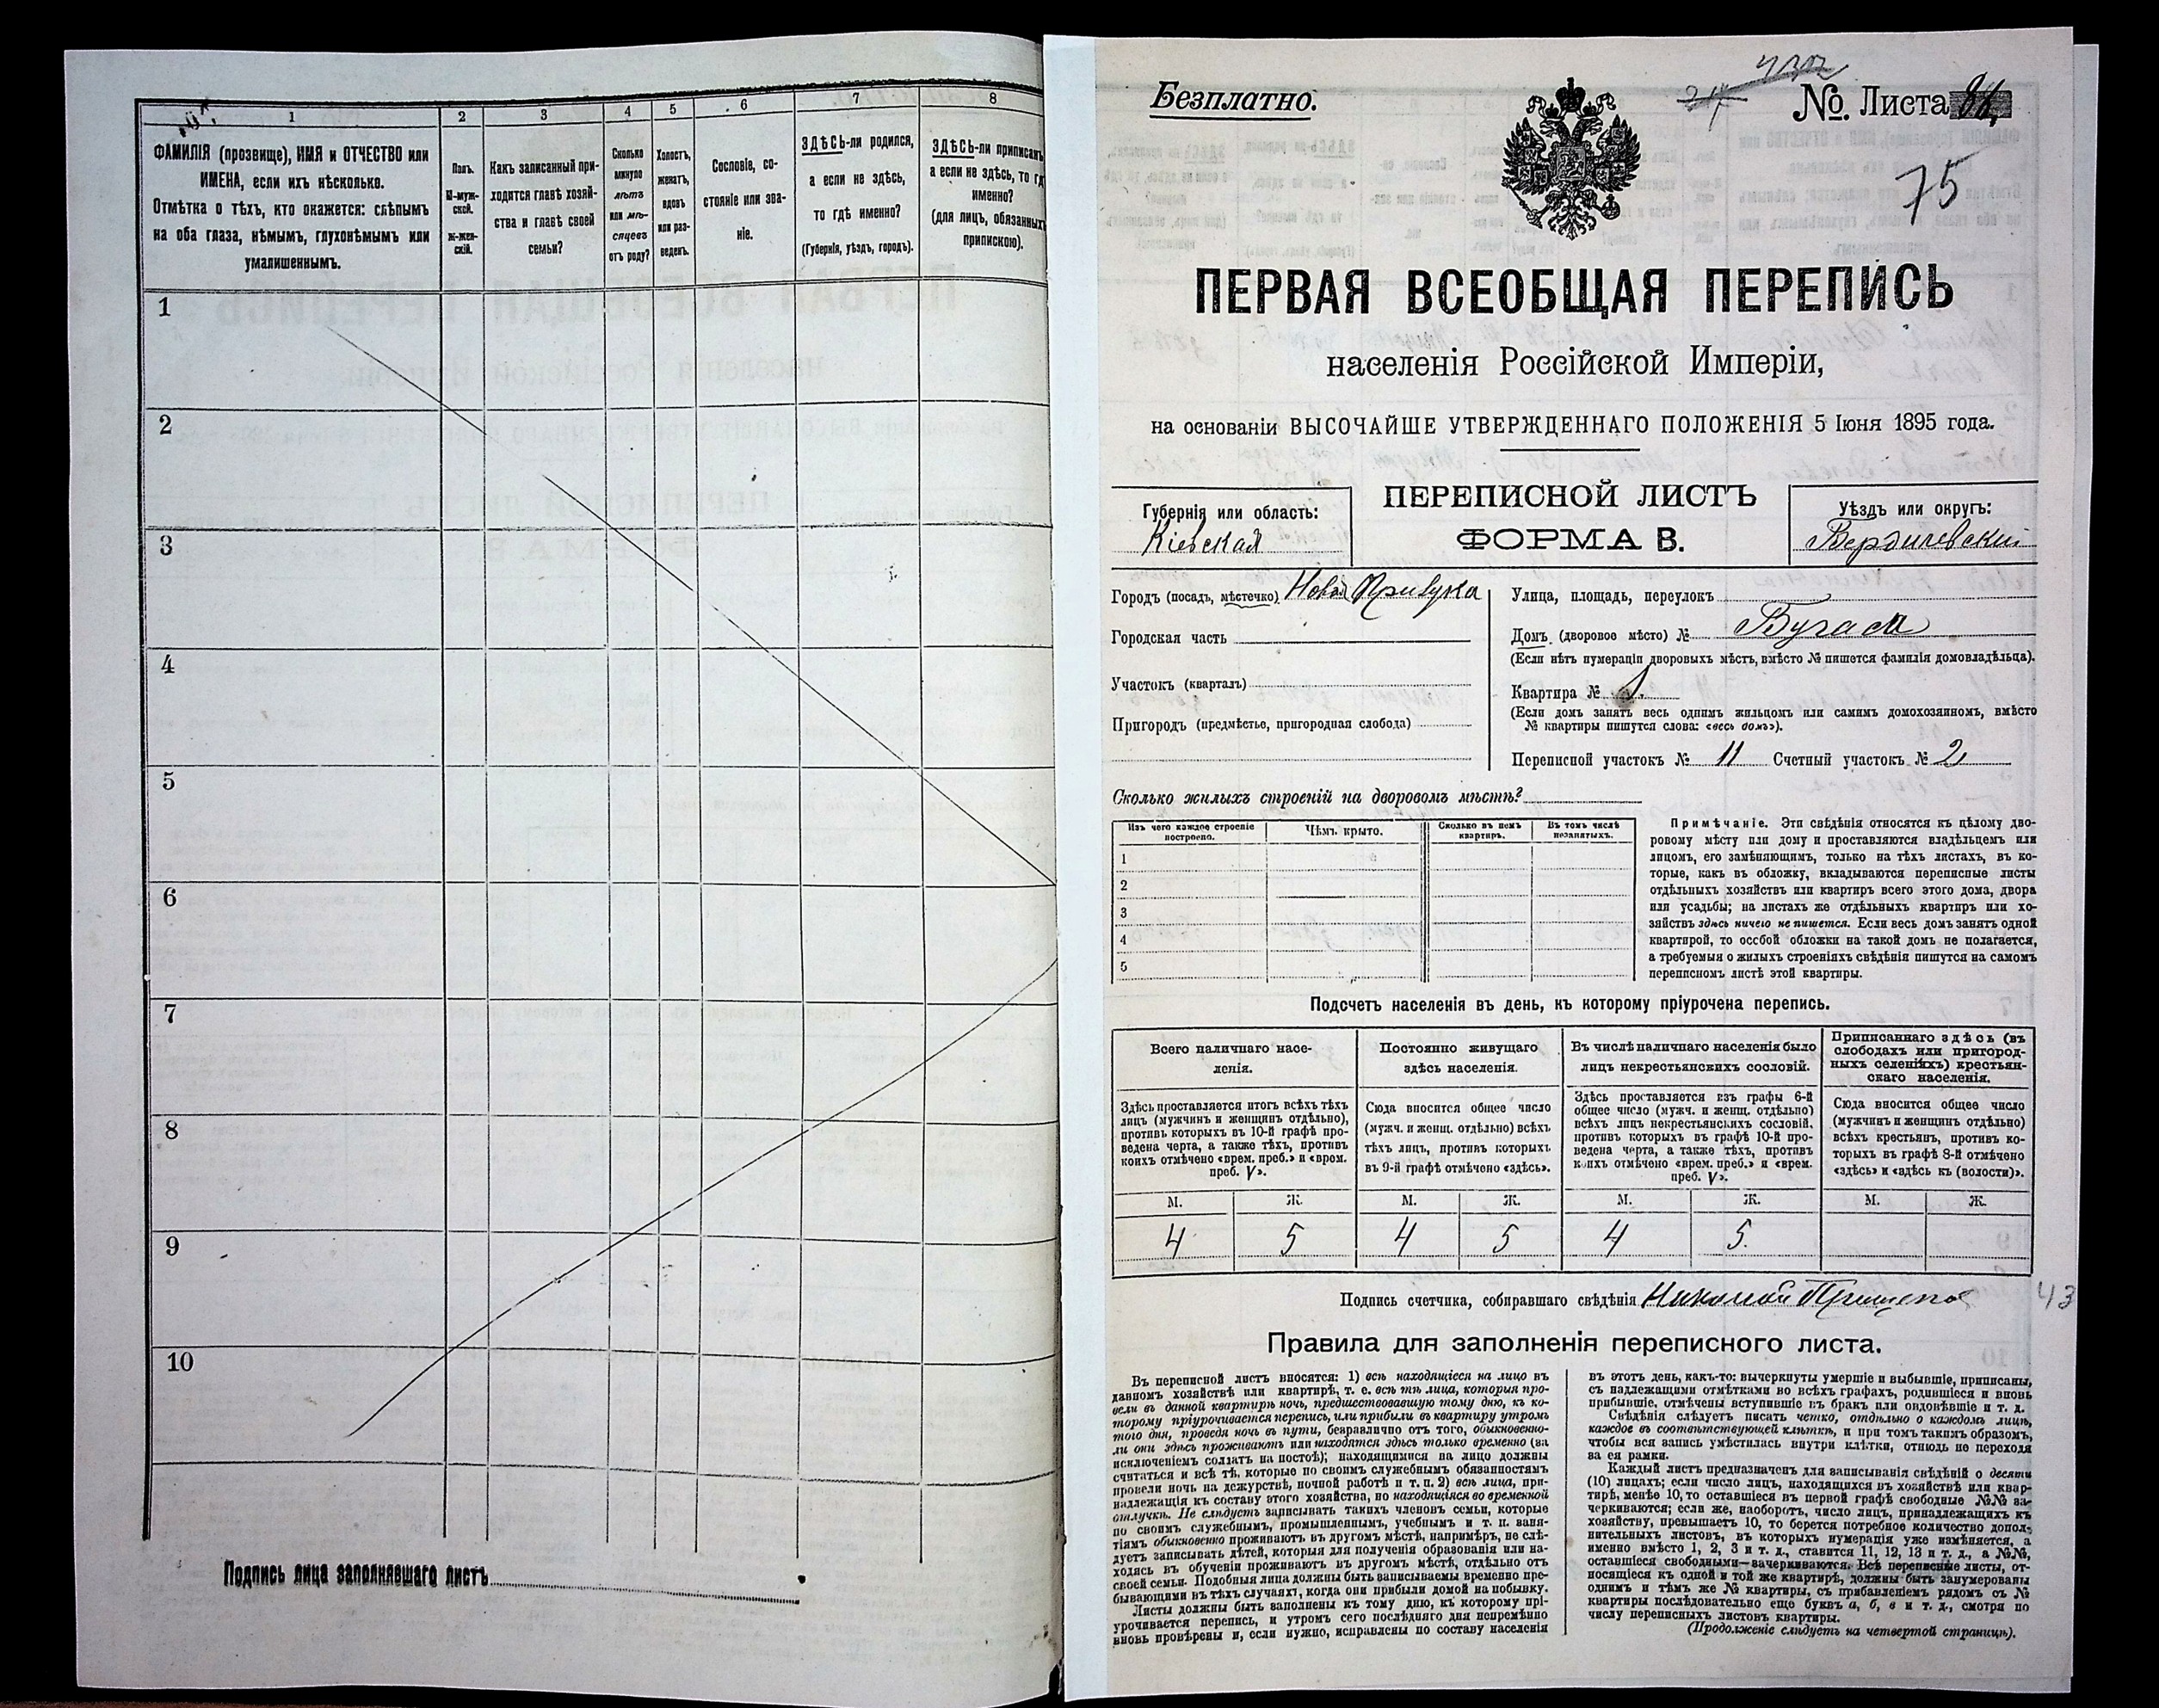 1
2
3
4
5
6
7
8
ФАМИЛІЯ (прозвище), ИМЯ и ОТЧЕСТВО или
ИМЕНА, если ихъ нѣсколько.
Отмѣтка о тѣхъ, кто окажется: слѣпымъ
на оба глаза, нѣмымъ, глухонѣмымъ или
умалишеннымъ.
Полъ.
М-муж-
ской.
Ж-жен-
скій.
Какъ записанный при-
ходится главѣ хозяй-
ства и главѣ своей
семьи?
Сколько
минуло
лѣтъ
или мѣ-
сяцевъ
отъ роду?
Холостъ,
женатъ,
вдовъ
или раз-
веденъ.
Сословіе, со-
стояніе или зва-
ніе.
ЗДѢСЬ-ли родился,
а если не здѣсь,
то гдѣ именно?
(Губернія, уѣздъ, городъ).
ЗДѢСЬ-ли приписанъ,
а если не здѣсь, то гдѣ
именно?
(для лицъ, обязанныхъ
припискою).
1
2
3
4
5
6
7
8
9
10
Подпись лица заполнявшаго листъ
Безплатно.
№. Листа
75
ПЕРВАЯ ВСЕОБЩАЯ ПЕРЕПИСЬ
населенія Россійской Имперіи,
на основаніи ВЫСОЧАЙШЕ УТВЕРЖДЕННАГО ПОЛОЖЕНІЯ 5 Іюня 1895 года.
Губернія или область:
Кіевская
ПЕРЕПИСНОЙ ЛИСТЪ
ФОРМА В.
Уѣздъ или округъ:
Бердичевскій
Городъ (посадъ, мѣстечко) Новая Прилука
Городская часть
Участокъ (кварталъ)
Пригородъ (предмѣстье, пригородная слобода)
Улица, площадь, переулокъ
Домъ (дворовое мѣсто) №
(Если нѣтъ нумераціи дворовыхъ мѣстъ, вмѣсто № пишется фамилія домовладѣльца).
Квартира №
(Если домъ занятъ весь однимъ жильцомъ или самимъ домохозяиномъ, вмѣсто
№ квартиры пишутся слова: «весь домъ»).
Переписной участокъ № 11 Счетный участокъ № 2
Сколько жилыхъ строеній на дворовомъ мѣстѣ?
Изъ чего каждое строеніе
построено.
Чѣмъ крыто.
Сколько въ немъ
квартиръ.
Въ томъ числѣ
незанятыхъ.
1
2
3
4
5
Примѣчаніе. Эти свѣдѣнія относятся къ цѣлому дво-
ровому мѣсту или дому и проставляются владѣльцемъ или
лицомъ, его замѣняющимъ, только на тѣхъ листахъ, въ ко-
торые, какъ въ обложку, вкладываются переписные листы
отдѣльныхъ хозяйствъ или квартиръ всего этого дома, двора
или усадьбы; на листахъ же отдѣльныхъ квартиръ или хо-
зяйствъ здѣсь ничего не пишется. Если весь домъ занятъ одной
квартирой, то особой обложки на такой домъ не полагается,
а требуемыя о жилыхъ строеніяхъ свѣдѣнія пишутся на самомъ
переписномъ листѣ этой квартиры.
Подсчетъ населенія въ день, къ которому пріурочена перепись.
Всего наличнаго насе-
ленія.
Постоянно живущаго
здѣсь населенія.
Въ числѣ наличнаго населенія было
лицъ некрестьянскихъ сословій.
Приписаннаго здѣсь (въ
слободахъ или пригород-
ныхъ селеніяхъ) крестьян-
скаго населенія.
Здѣсь проставляется итогъ всѣхъ тѣхъ
лицъ (мужчинъ и женщинъ отдѣльно),
противъ которыхъ въ 10-й графѣ про-
ведена черта, а также тѣхъ, противъ
коихъ отмѣчено «врем. преб.» и «врем.
преб. V».
Сюда вносится общее число
(мужч. и женщ. отдѣльно) всѣхъ
тѣхъ лицъ, противъ которыхъ
въ 9-й графѣ отмѣчено «здѣсь».
Здѣсь проставляется изъ графы 6-й
общее число (мужч. и женщ. отдѣльно)
всѣхъ лицъ некрестьянскихъ сословій,
противъ которыхъ въ графѣ 10-й про-
ведена черта, а также тѣхъ, противъ
коихъ отмѣчено «врем. преб.» и «врем.
преб. V».
Сюда вносится общее число
(мужчинъ и женщинъ отдѣльно)
всѣхъ крестьянъ, противъ ко-
торыхъ въ графѣ 8-й отмѣчено
«здѣсь» и «здѣсь къ (волости)».
М. Ж. М. Ж. М. Ж. М. Ж.
4 5 4 5 4 5.
Подпись счетчика, собиравшаго свѣдѣнія Николай
43
Правила для заполненія переписного листа.
Въ переписной листъ вносятся: 1) всѣ находящіеся на лицо въ
данномъ хозяйствѣ или квартирѣ, т. е. всѣ тѣ лица, которыя про-
вели въ данной квартирѣ ночь, предшествовавшую тому дню, къ ко-
торому пріурочивается перепись, или прибыли въ квартиру утромъ
того дня, проведя ночь въ пути, безразлично отъ того, обыкновенно-
ли они здѣсь проживаютъ или находятся здѣсь только временно (за
исключеніемъ солдатъ на постоѣ); находящимися на лицо должны
считаться и всѣ тѣ, которые по своимъ служебнымъ обязанностямъ
провели ночь на дежурствѣ, ночной работѣ и т. п. 2) всѣ лица, при-
надлежащія къ составу этого хозяйства, но находящіяся во временной
отлучкѣ. Не слѣдуетъ записывать такихъ членовъ семьи, которые
по своимъ служебнымъ, промышленнымъ, учебнымъ и т. п. заня-
тіямъ обыкновенно проживаютъ въ другомъ мѣстѣ, напримѣръ, не слѣ-
дуетъ записывать дѣтей, которыя для полученія образованія или на-
ходясь въ обученіи проживаютъ въ другомъ мѣстѣ, отдѣльно отъ
своей семьи. Подобныя лица должны быть записываемы временно пре-
бывающими въ тѣхъ случаяхъ, когда они прибыли домой на побывку.
Листы должны быть заполнены къ тому дню, къ которому прі-
урочивается перепись, и утромъ сего послѣдняго дня непремѣнно
вновь провѣрены и, если нужно, исправлены по составу населенія
въ этотъ день, какъ-то: вычеркнуты умершіе и выбывшіе, приписаны,
съ надлежащими отмѣтками во всѣхъ графахъ, родившіеся и вновь
прибывшіе, отмѣчены вступившіе въ бракъ или овдовѣвшіе и т. д.
Свѣдѣнія слѣдуетъ писать четко, отдѣльно о каждомъ лицѣ,
каждое въ соотвѣтствующей клѣткѣ, и при томъ такимъ образомъ,
чтобы вся запись умѣстилась внутри клѣтки, отнюдь не переходя
за ея рамки.
Каждый листъ предназначенъ для записыванія свѣдѣній о десяти
(10) лицахъ; если число лицъ, находящихся въ хозяйствѣ или квар-
тирѣ, менѣе 10, то оставшіеся въ первой графѣ свободные №№ за-
черкиваются; если же, наоборотъ, число лицъ, принадлежащихъ къ
хозяйству, превышаетъ 10, то берется потребное количество допол-
нительныхъ листовъ, въ которыхъ нумерація уже измѣняется, а
именно вмѣсто 1, 2, 3 и т. д., ставится 11, 12, 13 и т. д., а №№,
оставшіеся свободными—зачеркиваются. Всѣ переписные листы, от-
носящіеся къ одной и той же квартирѣ, должны быть занумерованы
однимъ и тѣмъ же № квартиры, съ прибавленіемъ рядомъ съ №
квартиры послѣдовательно еще буквъ а, б, в и т. д., смотря по
числу переписныхъ листовъ квартиры.
(Продолженіе слѣдуетъ на четвертой страницѣ).